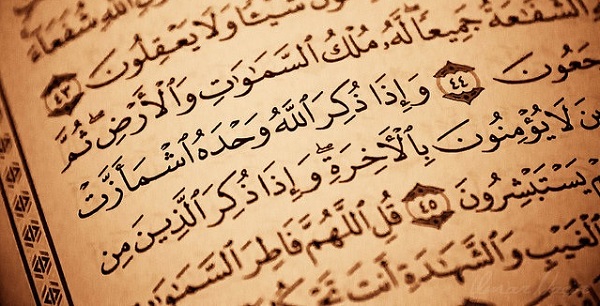 شُفَعَآءَ
شَيْـًٔا وَلَا يَعْقِلُونَ ٤٣
ٱلشَّفَٰعَةُ جَمِيعًا لَّهُۥ مُلْكُ ٱلسَّمَٰوَٰتِ وَٱلْأَرْضِ ثُمَّ
جَعُونَ ٤٤ وَإِذَا ذُكِرَ ٱللَّهُ وَحْدَهُ ٱشْمَأَزَّتْ
ينَ لَا يُؤْمِنُونَ بِٱلْأَخِرَةِ وَإِذَا ذُكِرَ ٱلَّذِينَ مِن
مْ يَسْتَبْشِرُونَ ٤٥ قُلِ ٱللَّهُمَّ فَاطِرَ ٱلسَّمَٰوَٰ
ٱلْغَيْبِ وَٱلشَّهَٰدَةِ أَنتَ تَحْكُمُ